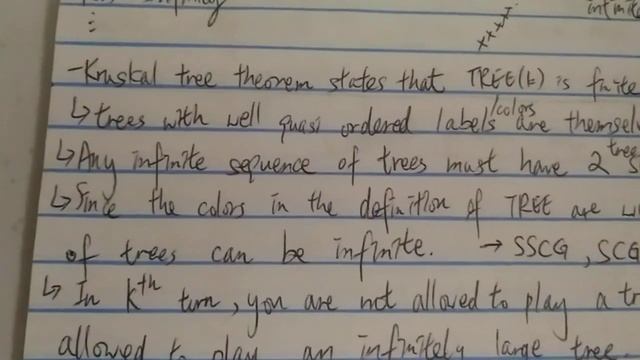 infinite
⋮
-Kruskal tree theorem states that TREE(k) is finite
↳trees with well quasi ordered labels/colors are themsel
↳Any infinite sequence of trees must have 2 trees
↳Since the colors in the definition of TREE are
of trees can be infinite. → SSCG, SCG
↳ In kth turn, you are not allowed to play a tr
allowed to play an infinitely large tree